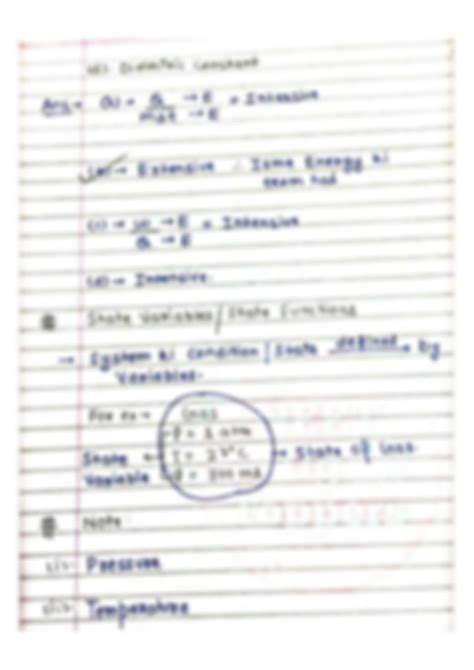 (d) Dielectric Constant
Ans → (b) = Q → E = Intensive
mΔt → E
(a) → Extensive ∵ Isme Energy ki
term hai
(c) → w → E = Intensive
Q → E
(d) → Intensive.
State Variables / State functions
→ System ki Condition / State defined by
Variables.
For ex → Gas
P = 1 atm
State T = 27°C → State of Gas.
Variable
Note:
(i) Pressure
(ii) Temperature